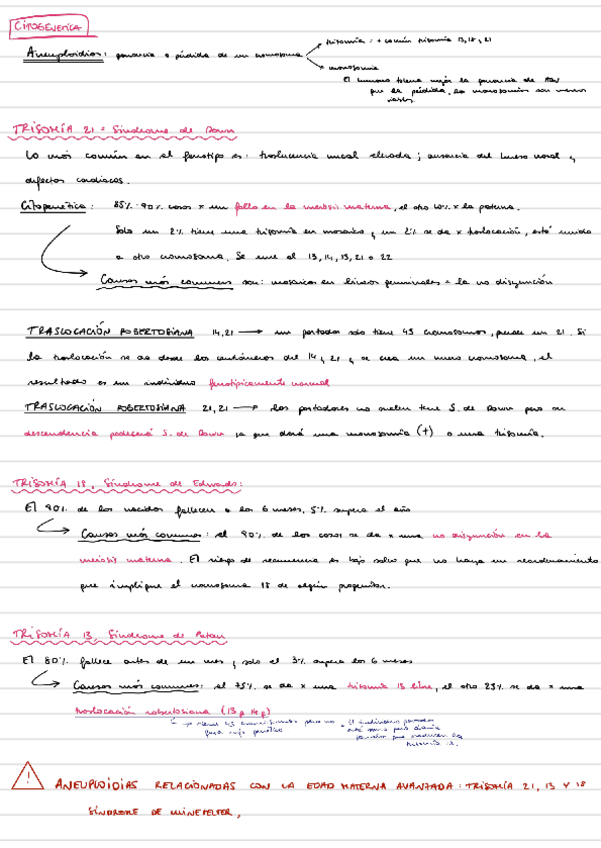 CITOGENETICA
Aneuploidias: ganancia o pérdida de un cromosoma
trisomia: + común trisomia 13, 18, 21
monosomia
El humano tolera mejor la ganancia de
que la pérdida, las monosomias son menos
TRISOMÍA 21 = Síndrome de Down
Lo más común en el fenotipo es: traslucencia nucal elevada; ausencia del hueso nasal y
defectos cardiacos.
Citogenética: 85%-90% casos x un fallo en la meiosis materna, el otro 10% x la paterna.
Solo un 2% tiene una trisomia en mosaico y un 2% se da x traslocación, está unido
a otro cromosoma. Se une al 13, 14, 15, 21 o 22
Causas más comunes son: mosaicos en líneas germinales = la no disyunción
TRASLOCACIÓN ROBERTSIANA 14,21 → un portador solo tiene 45 cromosomas, pierde un 21. Si
la traslocación se da desde los centrómeros del 14 y 21 y se crea un nuevo cromosoma, el
resultado es un individuo fenotípicamente normal
TRASLOCACIÓN ROBERTSIANA 21,21 → los portadores no suelen tener S. de Down pero su
descendencia padecerá S. de Down ya que dará una monosomía (+) o una trisomía.
TRISOMÍA 18, Síndrome de Edwards:
El 90% de los nacidos fallecen a los 6 meses, 5% supera el año
Causas más comunes: el 90% de los casos se da x una no disyunción en la
meiosis materna. El riesgo de recurrencia es bajo salvo que no haya un reordenamiento
que implique el cromosoma 18 de algún progenitor.
TRISOMÍA 13, Síndrome de Patau
El 80% fallece antes de un mes y solo el 3% supera los 6 meses
Causas más comunes: el 75% se da x una trisomia 13 libre, el otro 25% se da x una
traslocación robertsoniana (13q 14q)
el individuo portador
está sano pero
trisomia 13.
ANEUPLOIDIAS RELACIONADAS CON LA EDAD MATERNA AVANZADA: TRISOMÍA 21, 13 Y 18
SÍNDROME DE KLINEFELTER,